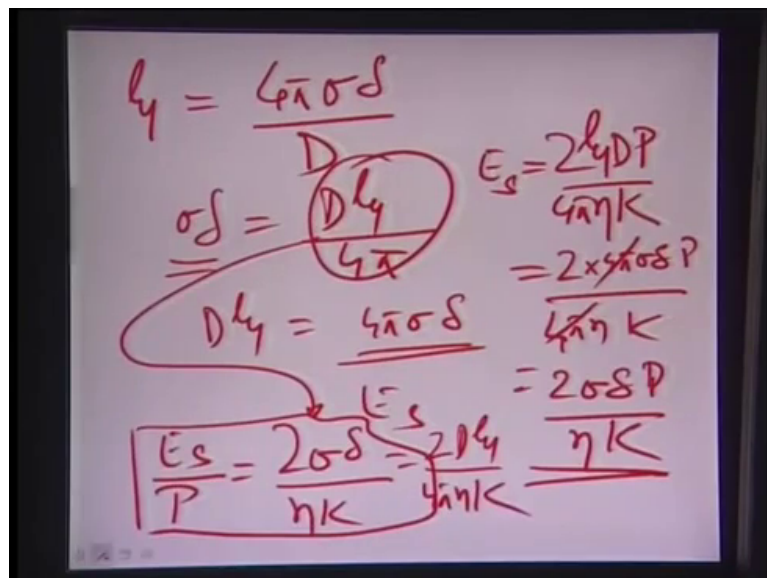 ly = 4πσδ / D
σδ = D ly / 4π
D ly = 4πσδ
Es
Es / P = 2σδ / ηK = 2D ly / 4πηK
Es = 2 ly DP / 4πηK
= 2 × 4πσδ P / 4πη K
= 2σδP / ηK